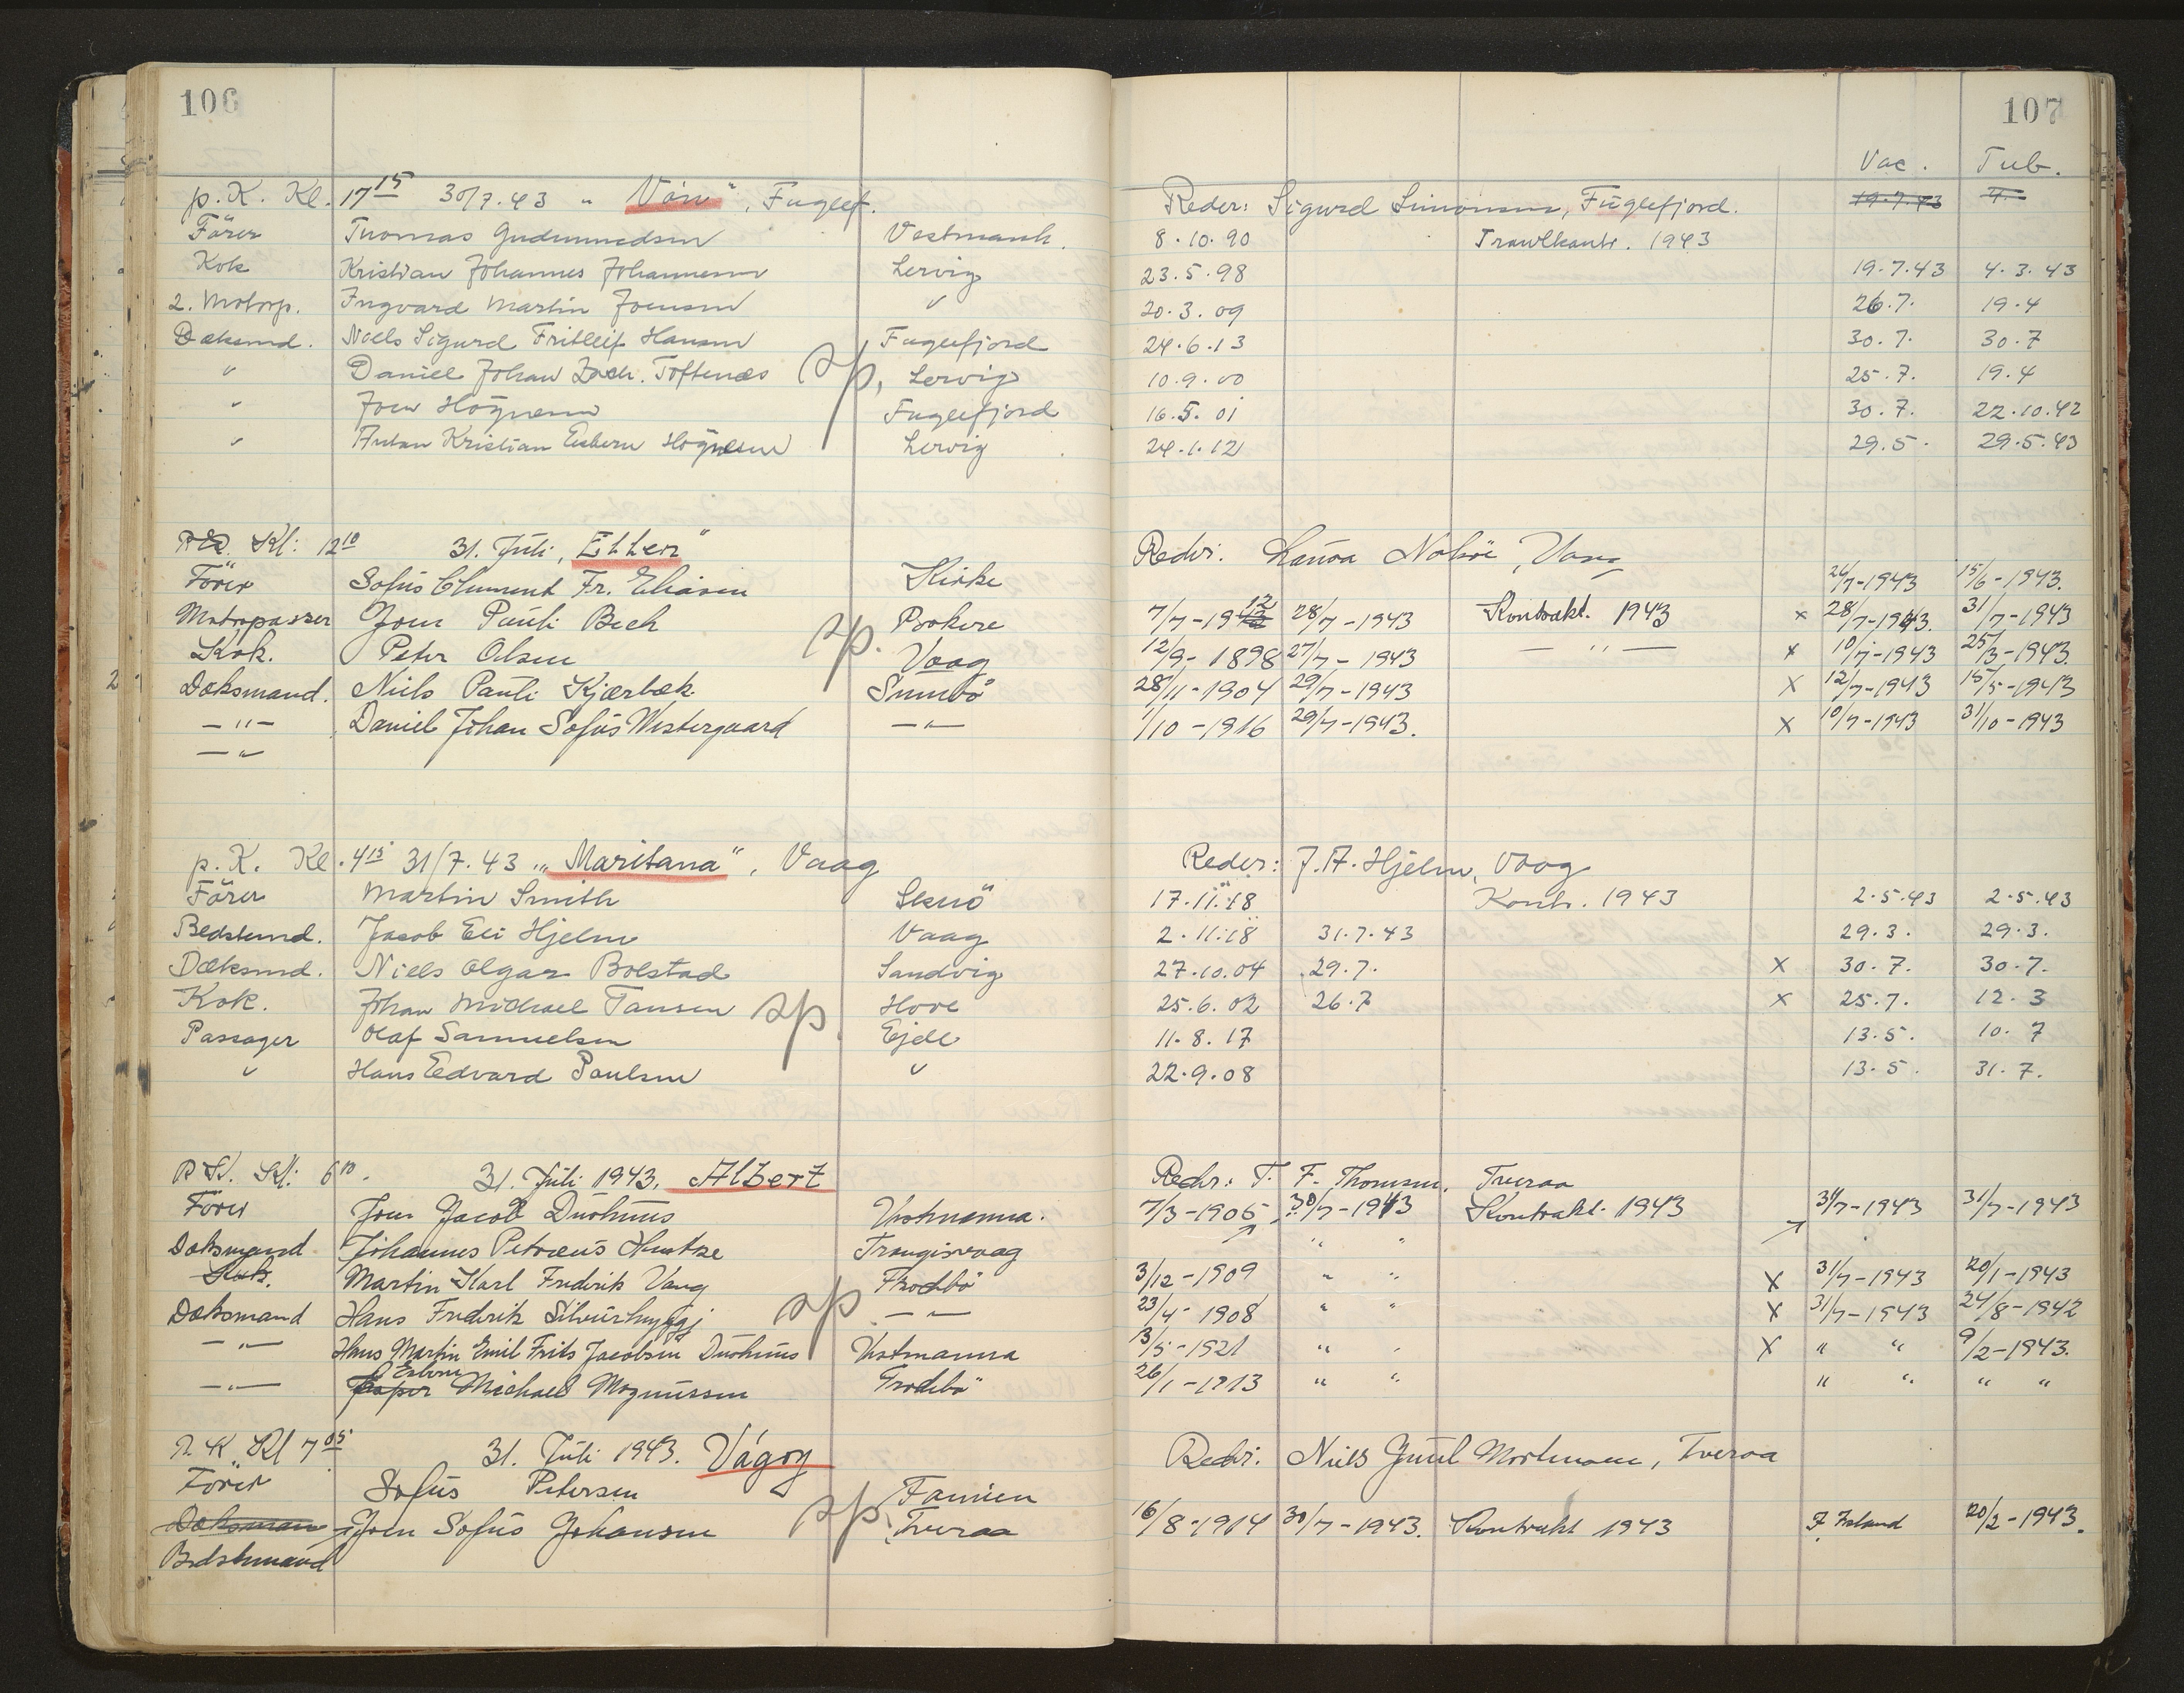 106
p. K. Kl. 17 15 30/7. 43 „ Vón“, Fuglef.
Förer Thomas Gudmundsen Vestmanh.
Kok Kristian Johannes Johannesen Lervig
2. Motorp. Ingvard Martin Joensen "
Dæksmd. Niels Sigurd Fritleif Hansen Fuglefjord
" Daniel Johan Zach. Toftenæs sp, Lervig
" Joen Högnesen Fuglefjord
" Anton Kristian Esbern Högnesen Lervig
Kl: 12 10 31. Juli, Ellen“
Förer Sofus Clement Fr. Eliasen Kirke
Motorpasser Joen Pauli Bech sp. Porkere
Kok. Peter Olsen Vaag
Dæksmand. Niels Pauli Kjærbæk Sumbö
— " — Daniel Johan Sofus Westergaard — " —
— " —
p. K. Kl. 4 15 31/7. 43 „Maritana“, Vaag
Förer Martin Smith Skuö
Bedstemd. Jacob Eli Hjelm Vaag
Dæksmd. Niels Olgar Bolstad Sandvig
Kok. Johan Michael Tausen sp Hove
Passager Olaf Samuelsen Ejde
" Hans Edvard Poulsen "
P K. Kl: 6 10. 31. Juli 1943. Albert
Förer Joen Jacob Duruhuus Vestmanna.
Dæksmand Johannes Petræus Hentze Trangisvaag
Kok. Martin Karl Fredrik Vang Frodbö
Dæksmand Hans Fredrik Silvurbuyggj sp — " —
— " — Hans Martin Emil Frits Jacobsen Duruhuus Vestmanna
— " — Jesper Esbern Michael Magnussen Frodbö
P. K Kl 7 05 31. Juli 1943. Vágoy
Förer Sofus Petersen Famien
Dæksman Joen Sofus Johansen sp. Tveraa
Bedstemand
107
Vac. Tub.
Reder: Sigurd Simonsen, Fuglefjord. 19.7.43 4.
8.10.90 Trawlkontr. 1943
23.5.98 19.7.43 4.3.43
20.3.09 26.7. 19.4
24.6.13 30.7. 30.7
10.9.00 25.7. 19.4
16.5.01 30.7. 22.10.42
24.1.12 29.5. 29.5.43
Reder. Nolsöe, Vaag
24/7-1943 15/6-1943.
7/7-1912 28/7-1943 Kontrakt. 1943 x 28/7-1943. 31/7-1943
12/9-1898 27/7-1943 — " — x 10/7-1943 25/3-1943.
28/11-1904 29/7-1943 x 12/7-1943 15/5-1943
1/10-1916 29/7-1943. x 10/7-1943 31/10-1943
Reder: J. A. Hjelm, Vaag
17.11.18 Kontr. 1943 2.5.43 2.5.43
2.11.18 31.7.43 29.3. 29.3.
27.10.04 29.7. x 30.7. 30.7.
25.6.02 26.7 x 25.7. 12.3
11.8.17 13.5. 10.7
22.9.08 13.5. 31.7.
Reder: T. F. Thomsen, Tveraa
7/3-1905 30/7-1943 Kontrakt. 1943 31/7-1943 31/7-1943
" "
3/12-1909 " " x 31/7-1943 20/1-1943
23/4-1908 " " x 31/7-1943 24/8-1942
13/5-1921 " " x " " 9/2-1943.
26/1-1913 " " " " " "
Reder. Niels Juul Mortensen, Tveraa
16/8-1914 30/7-1943. Kontrakt 1943 F. Island 20/2-1943.